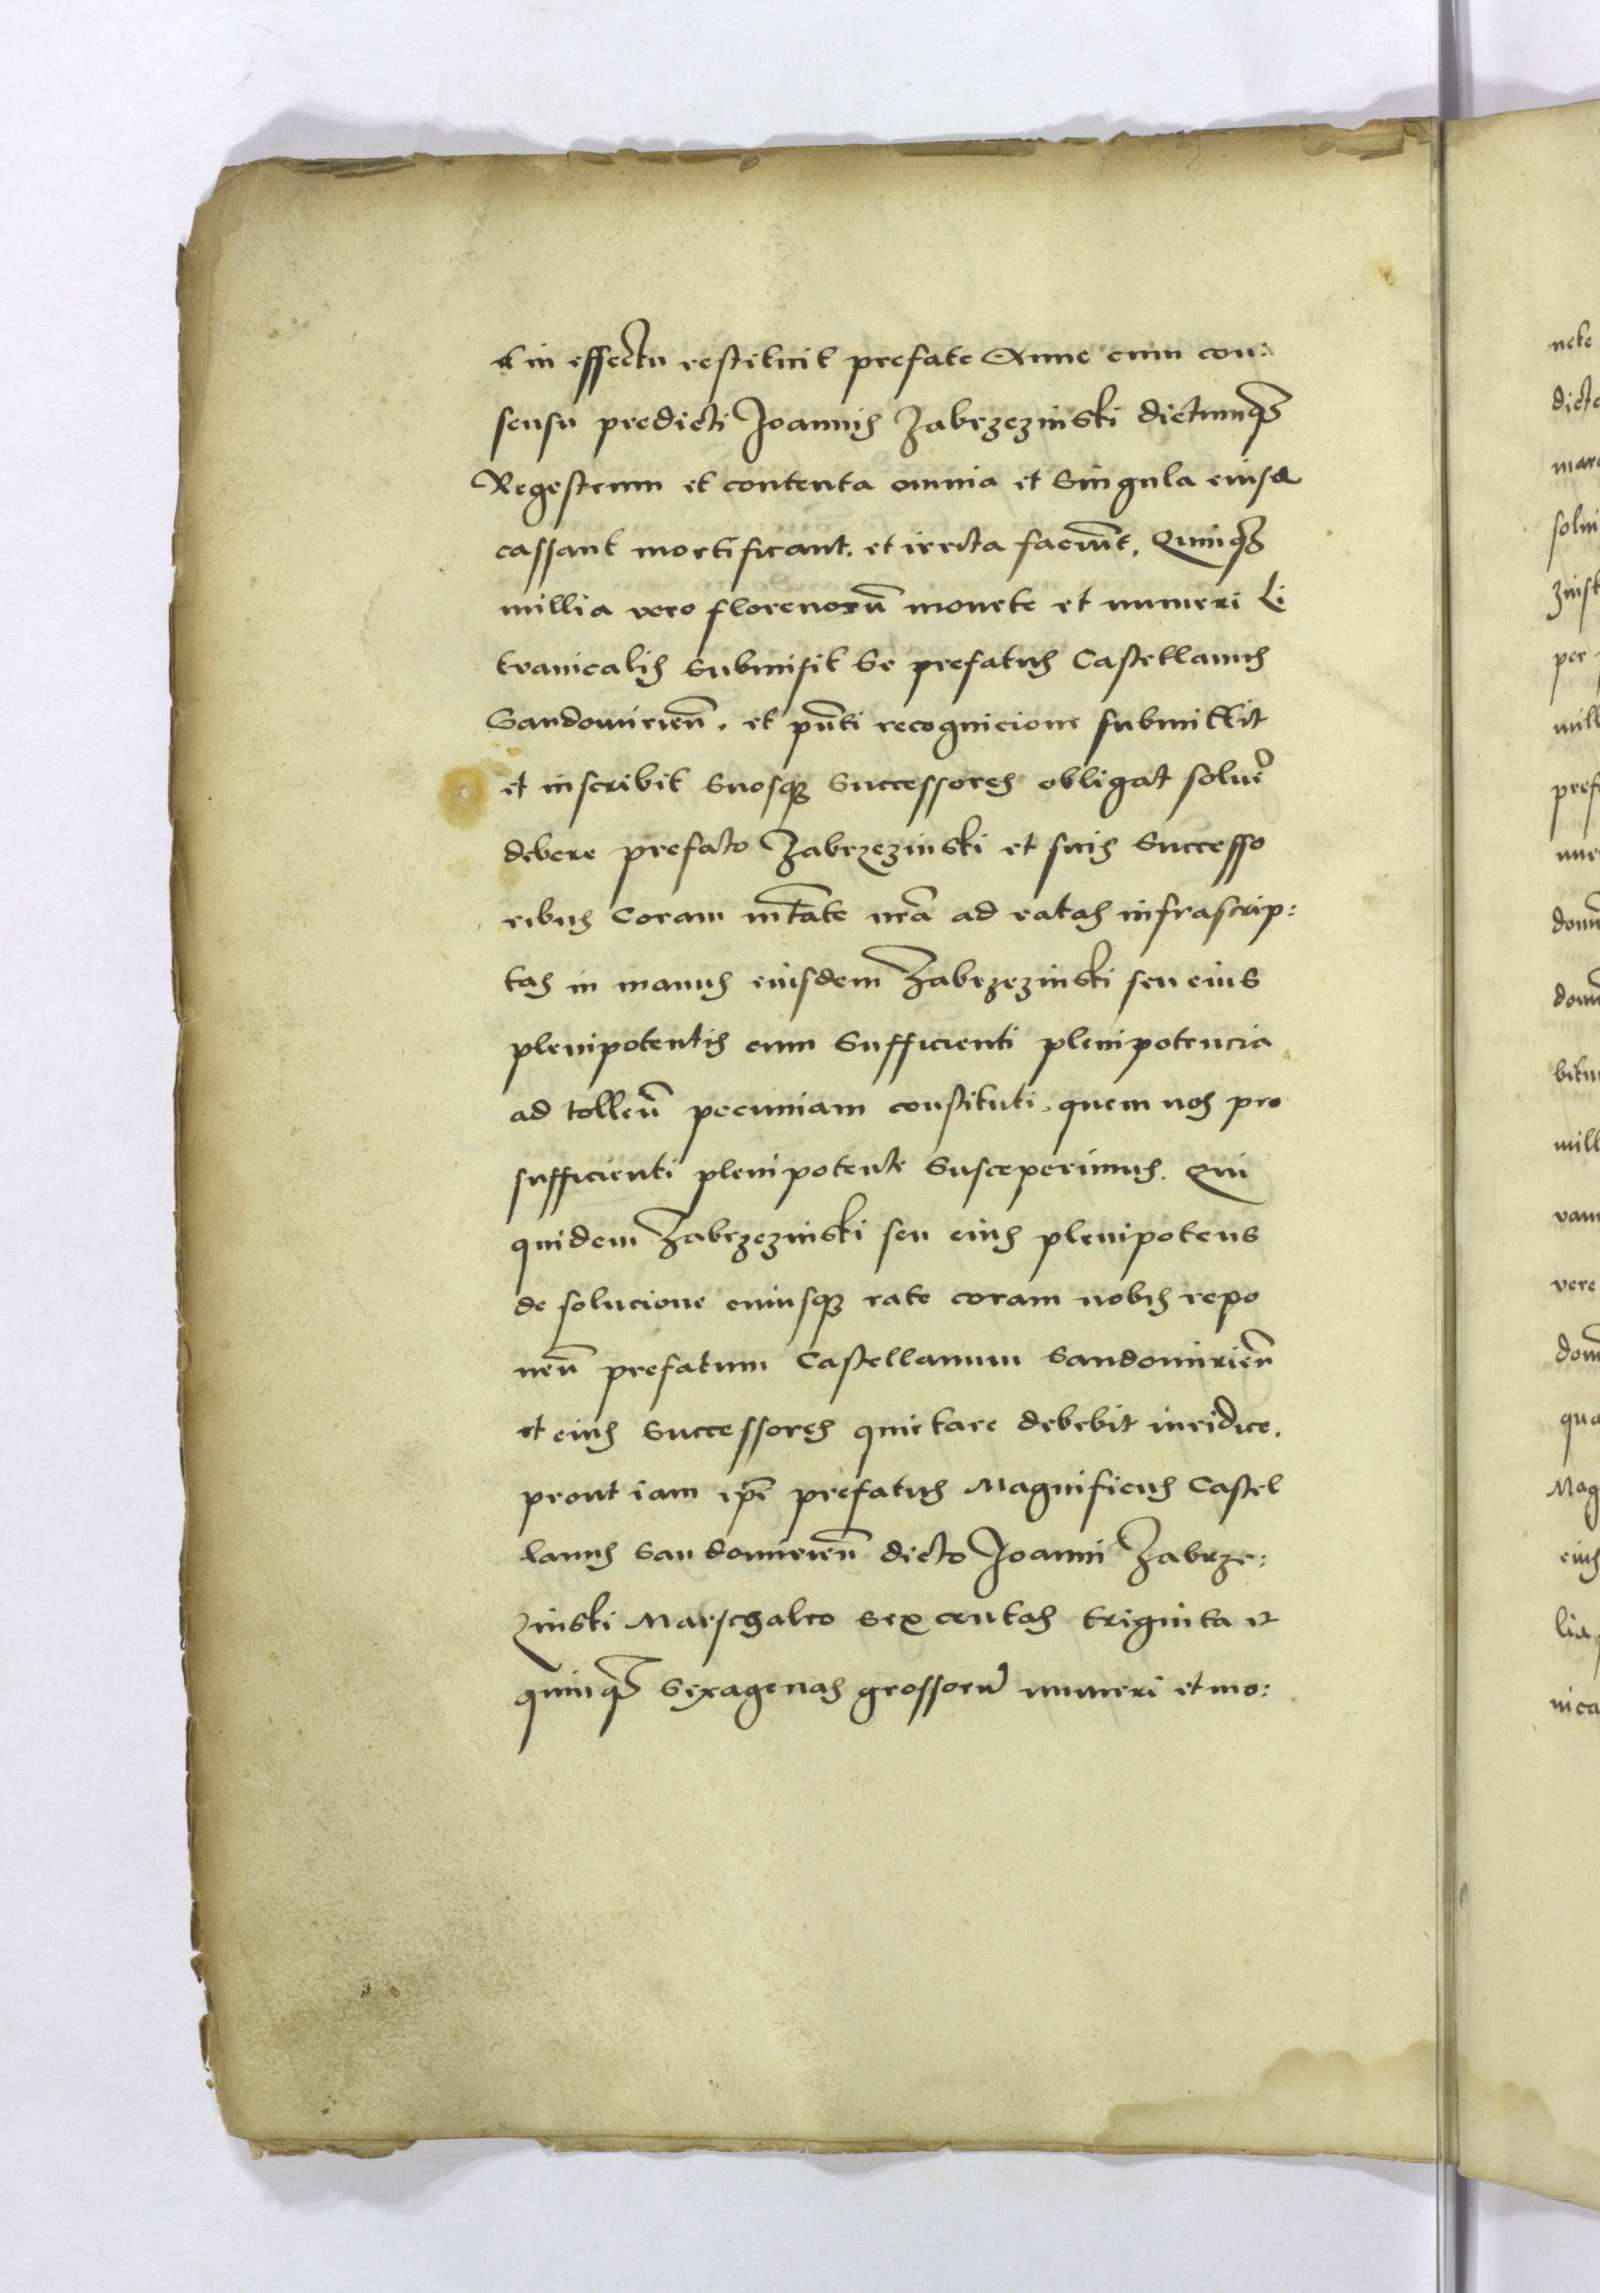 et in effectu restituit prefate Anne cum con:
sensu predicti Joannis Zabrzezinski dictumq3
Regestrum et contenta omnia et singula eiusd
cassant mortificant. et irrita faciūt. Quinq3
millia vero florenorū monete et numeri Li
tvanicalis submisit se prefatus Castellanus
Sandomirieñ. et pñti recognicione submittit
et inscribit suosq3 successores obligat solvē
debere prefato Zabrzezinski et suis successo
ribus coram mtate nrā ad ratas infrascrip:
tas in manus eiusdem Zabrzezinski seu eius
plenipotentis cum sufficienti plenipotencia
ad tolleñ pecuniam constituti. quem nos pro
sufficienti plenipotente susceperimus. Qui
quidem Zabrzezinski seu eius plenipotens
de solucione cuiusq3 rate coram nobis repo
neñ prefatum Castellanum Sandomirieñ
et eius successores quietare debebit iuridice.
prout iam ipē prefatus Magnificus Castel
lanus Sandomirieñ dicto Joanni Zabrze:
zinski Marschalco sexcentas triginta et
quinq3 sexagenas grossorū numeri et mo:
nete
dicto
marc
solui
zinsk
per
mill
pref
nue
donn
donn
bitu
mill
vani
vere
dom
qua
Mag
eius
lia
nica